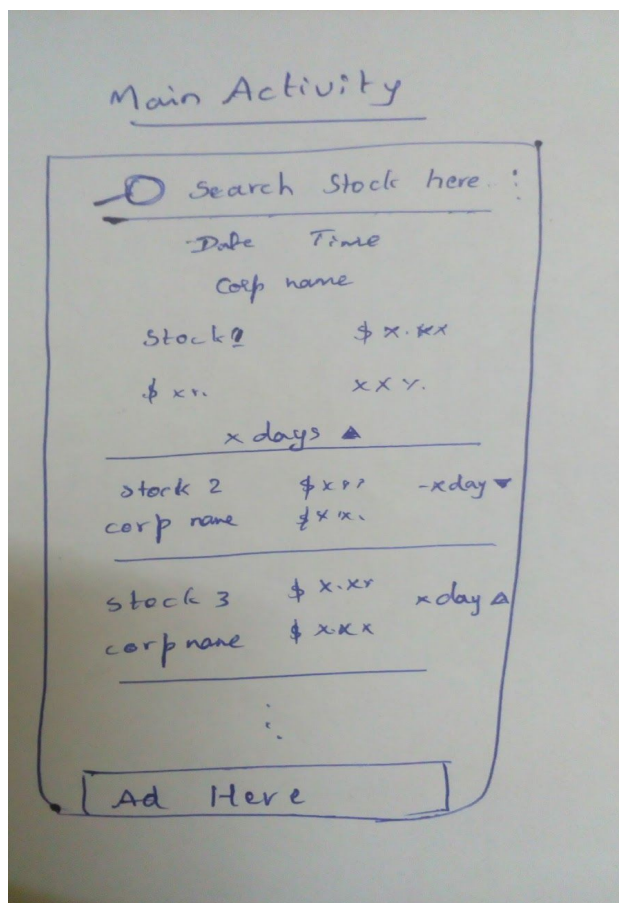 Main Activity
Search Stock here :
Date Time
Corp name
Stock $ x.xx
$ xx. XX %.
x days ▲
stock 2 -xday ▼
corp name $xx.
stock 3 $ x.xx xday ▲
corp name $ x.xx
Ad Here